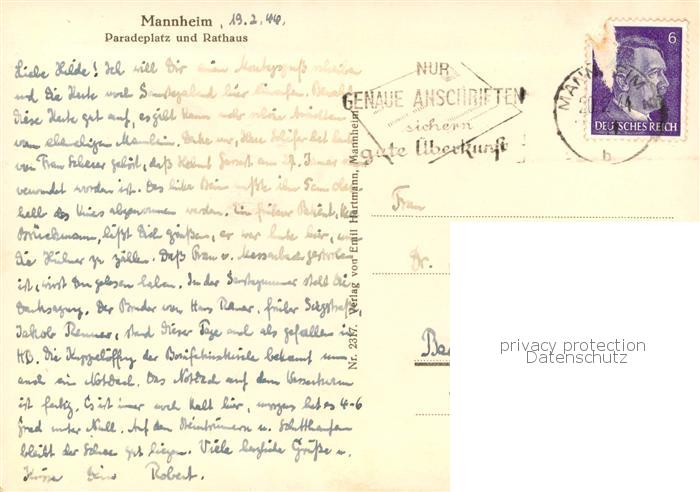 Mannheim, 19.2.44.
Paradeplatz und Rathaus
Liebe Hilde! Ich will Dir einen
und die Karte noch Samstagabend hier
diese Karte gut auf, es gibt keine mehr
vom ehemaligen Mannheim. Denke nur, Herr Schäfer hat heute
von Frau gehört, daß Helmut am 27. Januar
verwundet worden ist. Das linke Bein mußte ihm
halb des Knies abgenommen werden. Ein früherer Patient, Herr
Brückmann, läßt Dich grüßen, er war heute hier, um
die Hühner zu zählen. Daß Frau v. gestorben
ist, wirst Du gelesen haben. In der Samstagnummer steht die
Danksagung. Der Bruder von Hans Renner, früher
Jakob Renner, stand dieser Tage auch als gefallen im
HB. Die Kuppelöffng der Bonifatiuskirche bekommt nun
auch ein Notdach. Das Notdach auf dem Wasserturm
ist fertig. Es ist immer noch kalt hier, morgens hat es 4-6
Grad unter Null. Auf den Steintrümmern u. Schutthaufen
bleibt der Schnee gut liegen. Viele herzliche Grüße u.
Küsse Dein Robert.
Nr. 2317. — Verlag von Emil Hartmann, Mannheim
NUR
GENAUE ANSCHRIFTEN
sichern
gute Überkunft
MANNHEIM
b
6
DEUTSCHES REICH
Frau
Dr.
privacy protection
Datenschutz